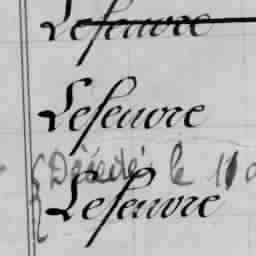 Lefeuvre
Lefeuvre
Décédé le 11
Lefeuvre